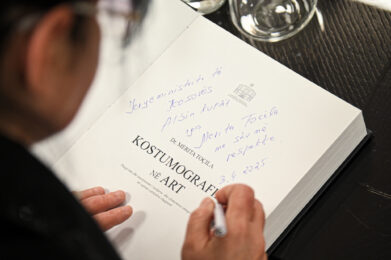 Kryeministrit të
Kosovës
Albin Kurti
nga Merita Tocila
me shumë
respekt
3.4.2025
Dr. MERITA TOCILA
KOSTUMOGRAFI
NË ART